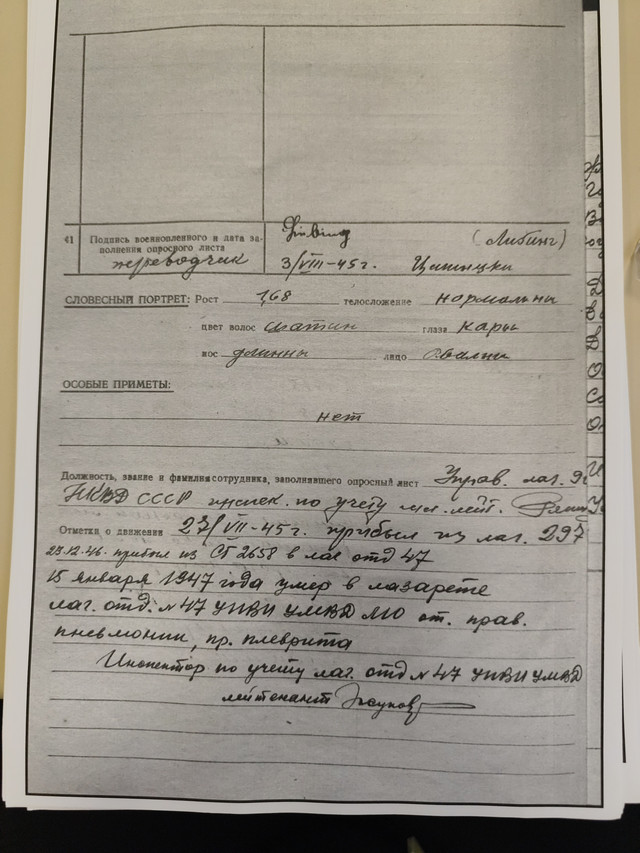 41 Подпись военнопленного и дата за-
полнения опросного листа
(Либинг)
переводчик 3/VIII-45 г.
СЛОВЕСНЫЙ ПОРТРЕТ: Рост 1,68 телосложение нормальны
цвет волос шатин глаза кары
нос длинны лицо овалны
ОСОБЫЕ ПРИМЕТЫ:
нет
Должность, звание и фамилия сотрудника, заполнявшего опросный лист Управ. лаг.
НКВД СССР инспек. по учету мл. лейт.
Отметки о движении 27/VII-45 г. прибыл из лаг. 297
23.12.46. прибыл из СГ 2658 в лаг отд 47
15 января 1947 года умер в лазарете
лаг. отд. №47 УПВИ УМВД МО от. прав.
пневмонии, пр. плеврита
Инспектор по учету лаг. отд №47 УПВИ УМВД
лейтенант